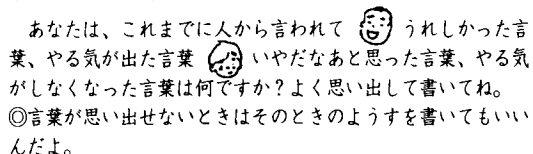 あなたは、これまでに人から言われて うれしかった言
葉、やる気が出た言葉 いやだなあと思った言葉、やる気
がしなくなった言葉は何ですか？よく思い出して書いてね。
◎言葉が思い出せないときはそのときのようすを書いてもいい
んだよ。